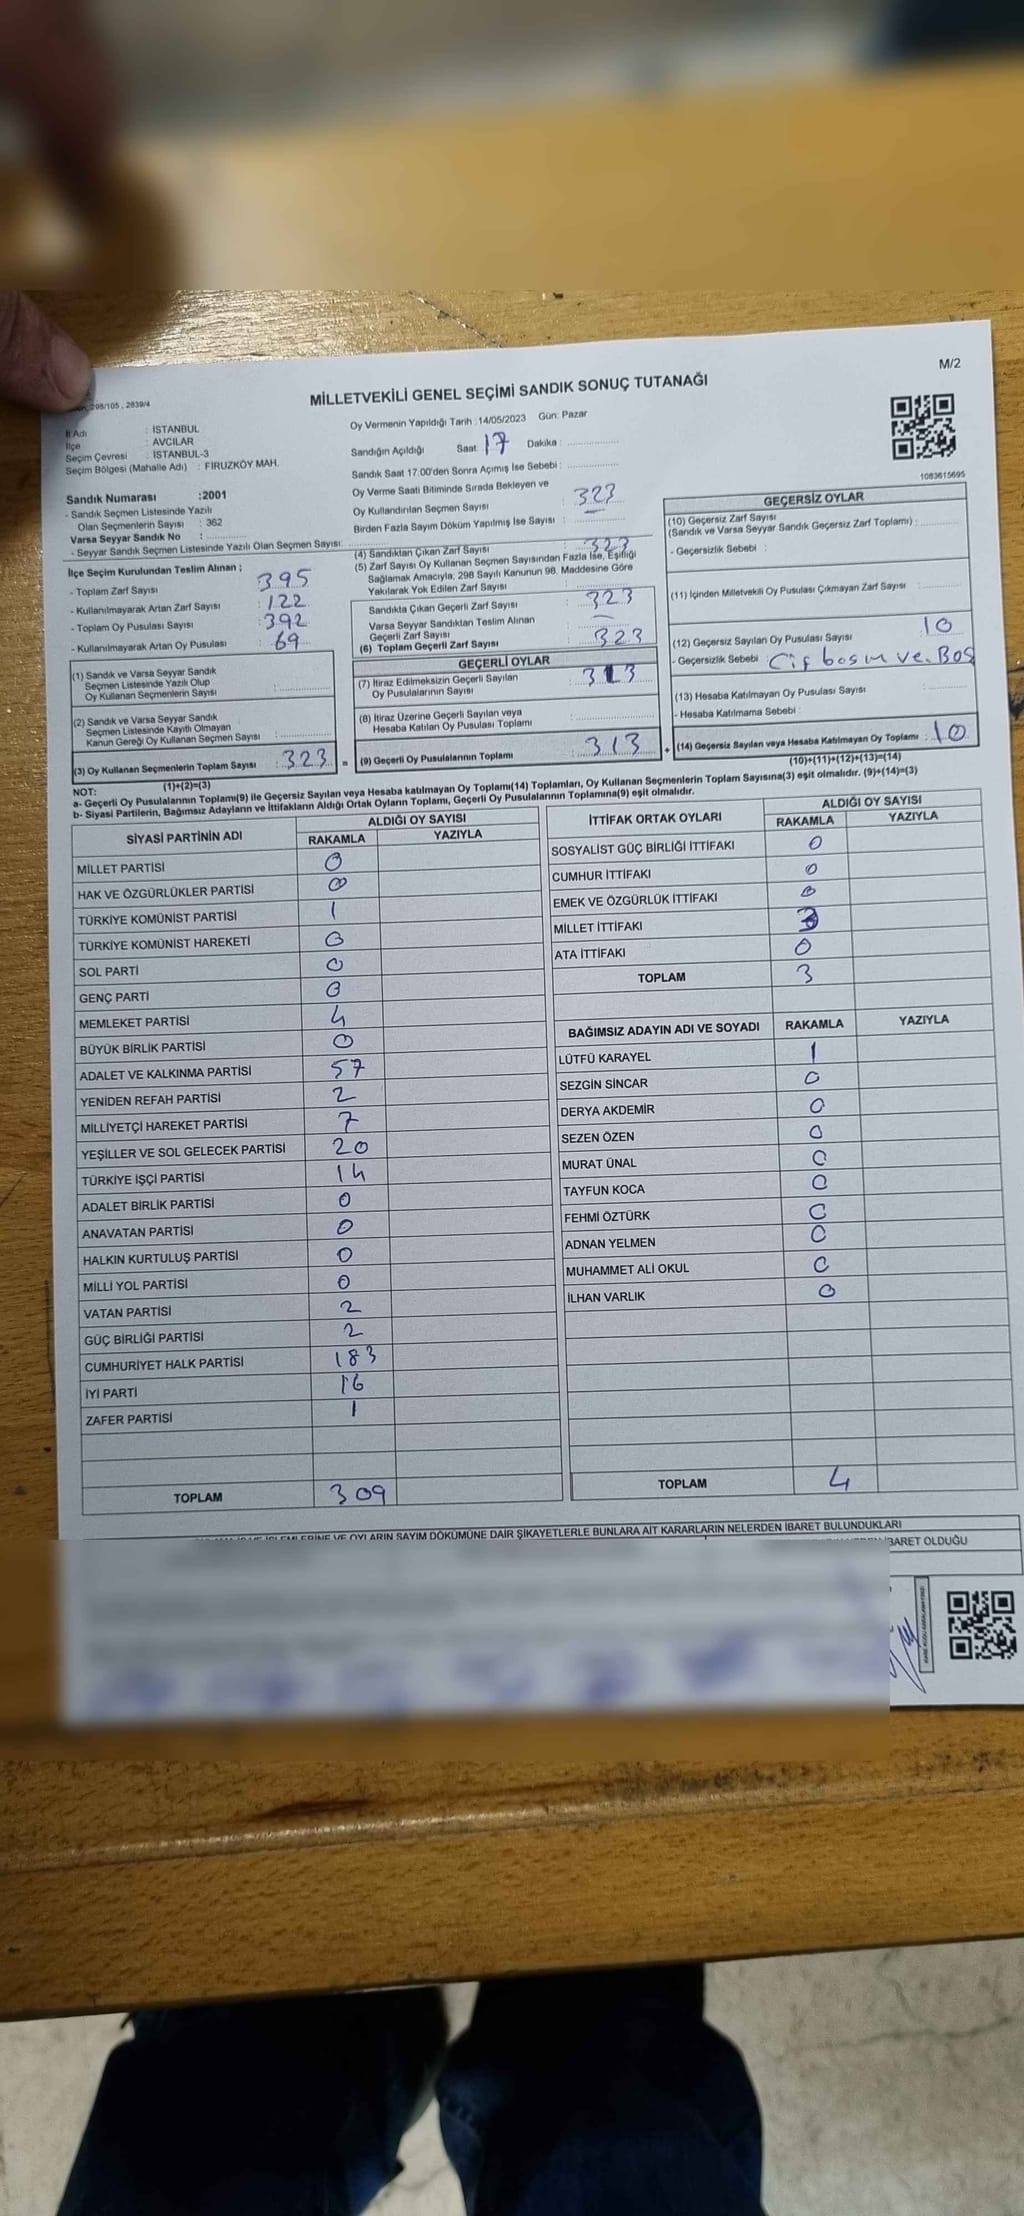 298/105 , 2839/4
M/2
MİLLETVEKİLİ GENEL SEÇİMİ SANDIK SONUÇ TUTANAĞI
İl Adı : İSTANBUL
İlçe : AVCILAR
Seçim Çevresi : İSTANBUL-3
Seçim Bölgesi (Mahalle Adı) : FİRUZKÖY MAH.
Sandık Numarası :2001
- Sandık Seçmen Listesinde Yazılı
Olan Seçmenlerin Sayısı : 362
Varsa Seyyar Sandık No :
- Seyyar Sandık Seçmen Listesinde Yazılı Olan Seçmen Sayısı:
Oy Vermenin Yapıldığı Tarih :14/05/2023 Gün: Pazar
Sandığın Açıldığı Saat: 17 Dakika :
Sandık Saat 17:00'den Sonra Açımış İse Sebebi :
Oy Verme Saati Bitiminde Sırada Bekleyen ve
Oy Kullandırılan Seçmen Sayısı : 323
Birden Fazla Sayım Döküm Yapılmış İse Sayısı :
1083615695
İlçe Seçim Kurulundan Teslim Alınan ;
- Toplam Zarf Sayısı : 395
- Kullanılmayarak Artan Zarf Sayısı : 122
- Toplam Oy Pusulası Sayısı : 392
- Kullanılmayarak Artan Oy Pusulası : 69
(1) Sandık ve Varsa Seyyar Sandık
Seçmen Listesinde Yazılı Olup
Oy Kullanan Seçmenlerin Sayısı :
(2) Sandık ve Varsa Seyyar Sandık
Seçmen Listesinde Kayıtlı Olmayan
Kanun Gereği Oy Kullanan Seçmen Sayısı :
(3) Oy Kullanan Seçmenlerin Toplam Sayısı : 323
(1)+(2)=(3)
(4) Sandıktan Çıkan Zarf Sayısı : 323
(5) Zarf Sayısı Oy Kullanan Seçmen Sayısından Fazla İse, Eşitliği
Sağlamak Amacıyla, 298 Sayılı Kanunun 98. Maddesine Göre
Yakılarak Yok Edilen Zarf Sayısı :
Sandıkta Çıkan Geçerli Zarf Sayısı : 323
Varsa Seyyar Sandıktan Teslim Alınan
Geçerli Zarf Sayısı : –
(6) Toplam Geçerli Zarf Sayısı : 323
GEÇERLİ OYLAR
(7) İtiraz Edilmeksizin Geçerli Sayılan
Oy Pusulalarının Sayısı : 313
(8) İtiraz Üzerine Geçerli Sayılan veya
Hesaba Katılan Oy Pusulası Toplamı :
= (9) Geçerli Oy Pusulalarının Toplamı : 313
GEÇERSİZ OYLAR
(10) Geçersiz Zarf Sayısı
(Sandık ve Varsa Seyyar Sandık Geçersiz Zarf Toplamı) :
- Geçersizlik Sebebi :
(11) İçinden Milletvekili Oy Pusulası Çıkmayan Zarf Sayısı :
(12) Geçersiz Sayılan Oy Pusulası Sayısı : 10
- Geçersizlik Sebebi : Çif bosım ve. Boş
(13) Hesaba Katılmayan Oy Pusulası Sayısı :
- Hesaba Katılmama Sebebi :
+ (14) Geçersiz Sayılan veya Hesaba Katılmayan Oy Toplamı : 10
(10)+(11)+(12)+(13)=(14)
NOT:
a- Geçerli Oy Pusulalarının Toplamı(9) ile Geçersiz Sayılan veya Hesaba katılmayan Oy Toplamı(14) Toplamları, Oy Kullanan Seçmenlerin Toplam Sayısına(3) eşit olmalıdır. (9)+(14)=(3)
b- Siyasi Partilerin, Bağımsız Adayların ve İttifakların Aldığı Ortak Oyların Toplamı, Geçerli Oy Pusulalarının Toplamına(9) eşit olmalıdır.
SİYASİ PARTİNİN ADI ALDIĞI OY SAYISI
RAKAMLA YAZIYLA
MİLLET PARTİSİ 0
HAK VE ÖZGÜRLÜKLER PARTİSİ 0
TÜRKİYE KOMÜNİST PARTİSİ 1
TÜRKİYE KOMÜNİST HAREKETİ 0
SOL PARTİ 0
GENÇ PARTİ 0
MEMLEKET PARTİSİ 4
BÜYÜK BİRLİK PARTİSİ 0
ADALET VE KALKINMA PARTİSİ 57
YENİDEN REFAH PARTİSİ 2
MİLLİYETÇİ HAREKET PARTİSİ 7
YEŞİLLER VE SOL GELECEK PARTİSİ 20
TÜRKİYE İŞÇİ PARTİSİ 14
ADALET BİRLİK PARTİSİ 0
ANAVATAN PARTİSİ 0
HALKIN KURTULUŞ PARTİSİ 0
MİLLİ YOL PARTİSİ 0
VATAN PARTİSİ 2
GÜÇ BİRLİĞİ PARTİSİ 2
CUMHURİYET HALK PARTİSİ 183
İYİ PARTİ 16
ZAFER PARTİSİ 1
TOPLAM 309
İTTİFAK ORTAK OYLARI ALDIĞI OY SAYISI
RAKAMLA YAZIYLA
SOSYALİST GÜÇ BİRLİĞİ İTTİFAKI 0
CUMHUR İTTİFAKI 0
EMEK VE ÖZGÜRLÜK İTTİFAKI 0
MİLLET İTTİFAKI 3
ATA İTTİFAKI 0
TOPLAM 3
BAĞIMSIZ ADAYIN ADI VE SOYADI RAKAMLA YAZIYLA
LÜTFÜ KARAYEL 1
SEZGİN SİNCAR 0
DERYA AKDEMİR 0
SEZEN ÖZEN 0
MURAT ÜNAL 0
TAYFUN KOCA 0
FEHMİ ÖZTÜRK 0
ADNAN YELMEN 0
MUHAMMET ALİ OKUL 0
İLHAN VARLIK 0
TOPLAM 4
VE OYLARIN SAYIM DÖKÜMÜNE DAİR ŞİKAYETLERLE BUNLARA AİT KARARLARIN NELERDEN İBARET BULUNDUKLARI
İBARET OLDUĞU